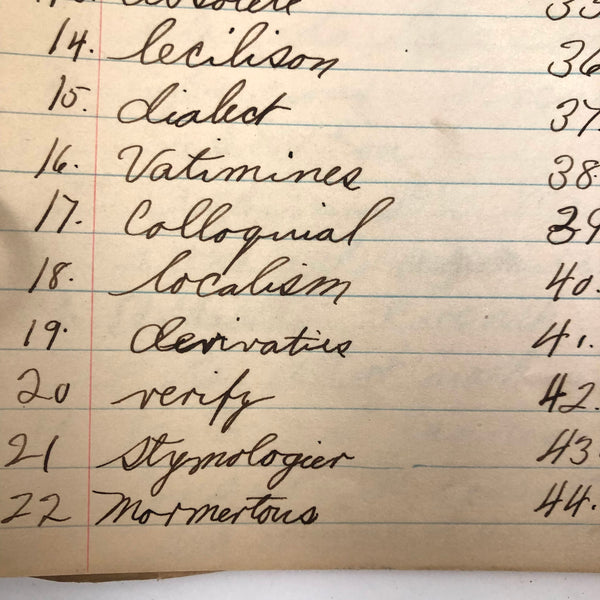 obsolete 35
14. lecilison 36
15. dialect 37.
16. Vatimines 38.
17. Colloquial 39
18. localism 40.
19. derivaties 41.
20 verify 42.
21 Stymologier 43.
22 Mormertous 44.